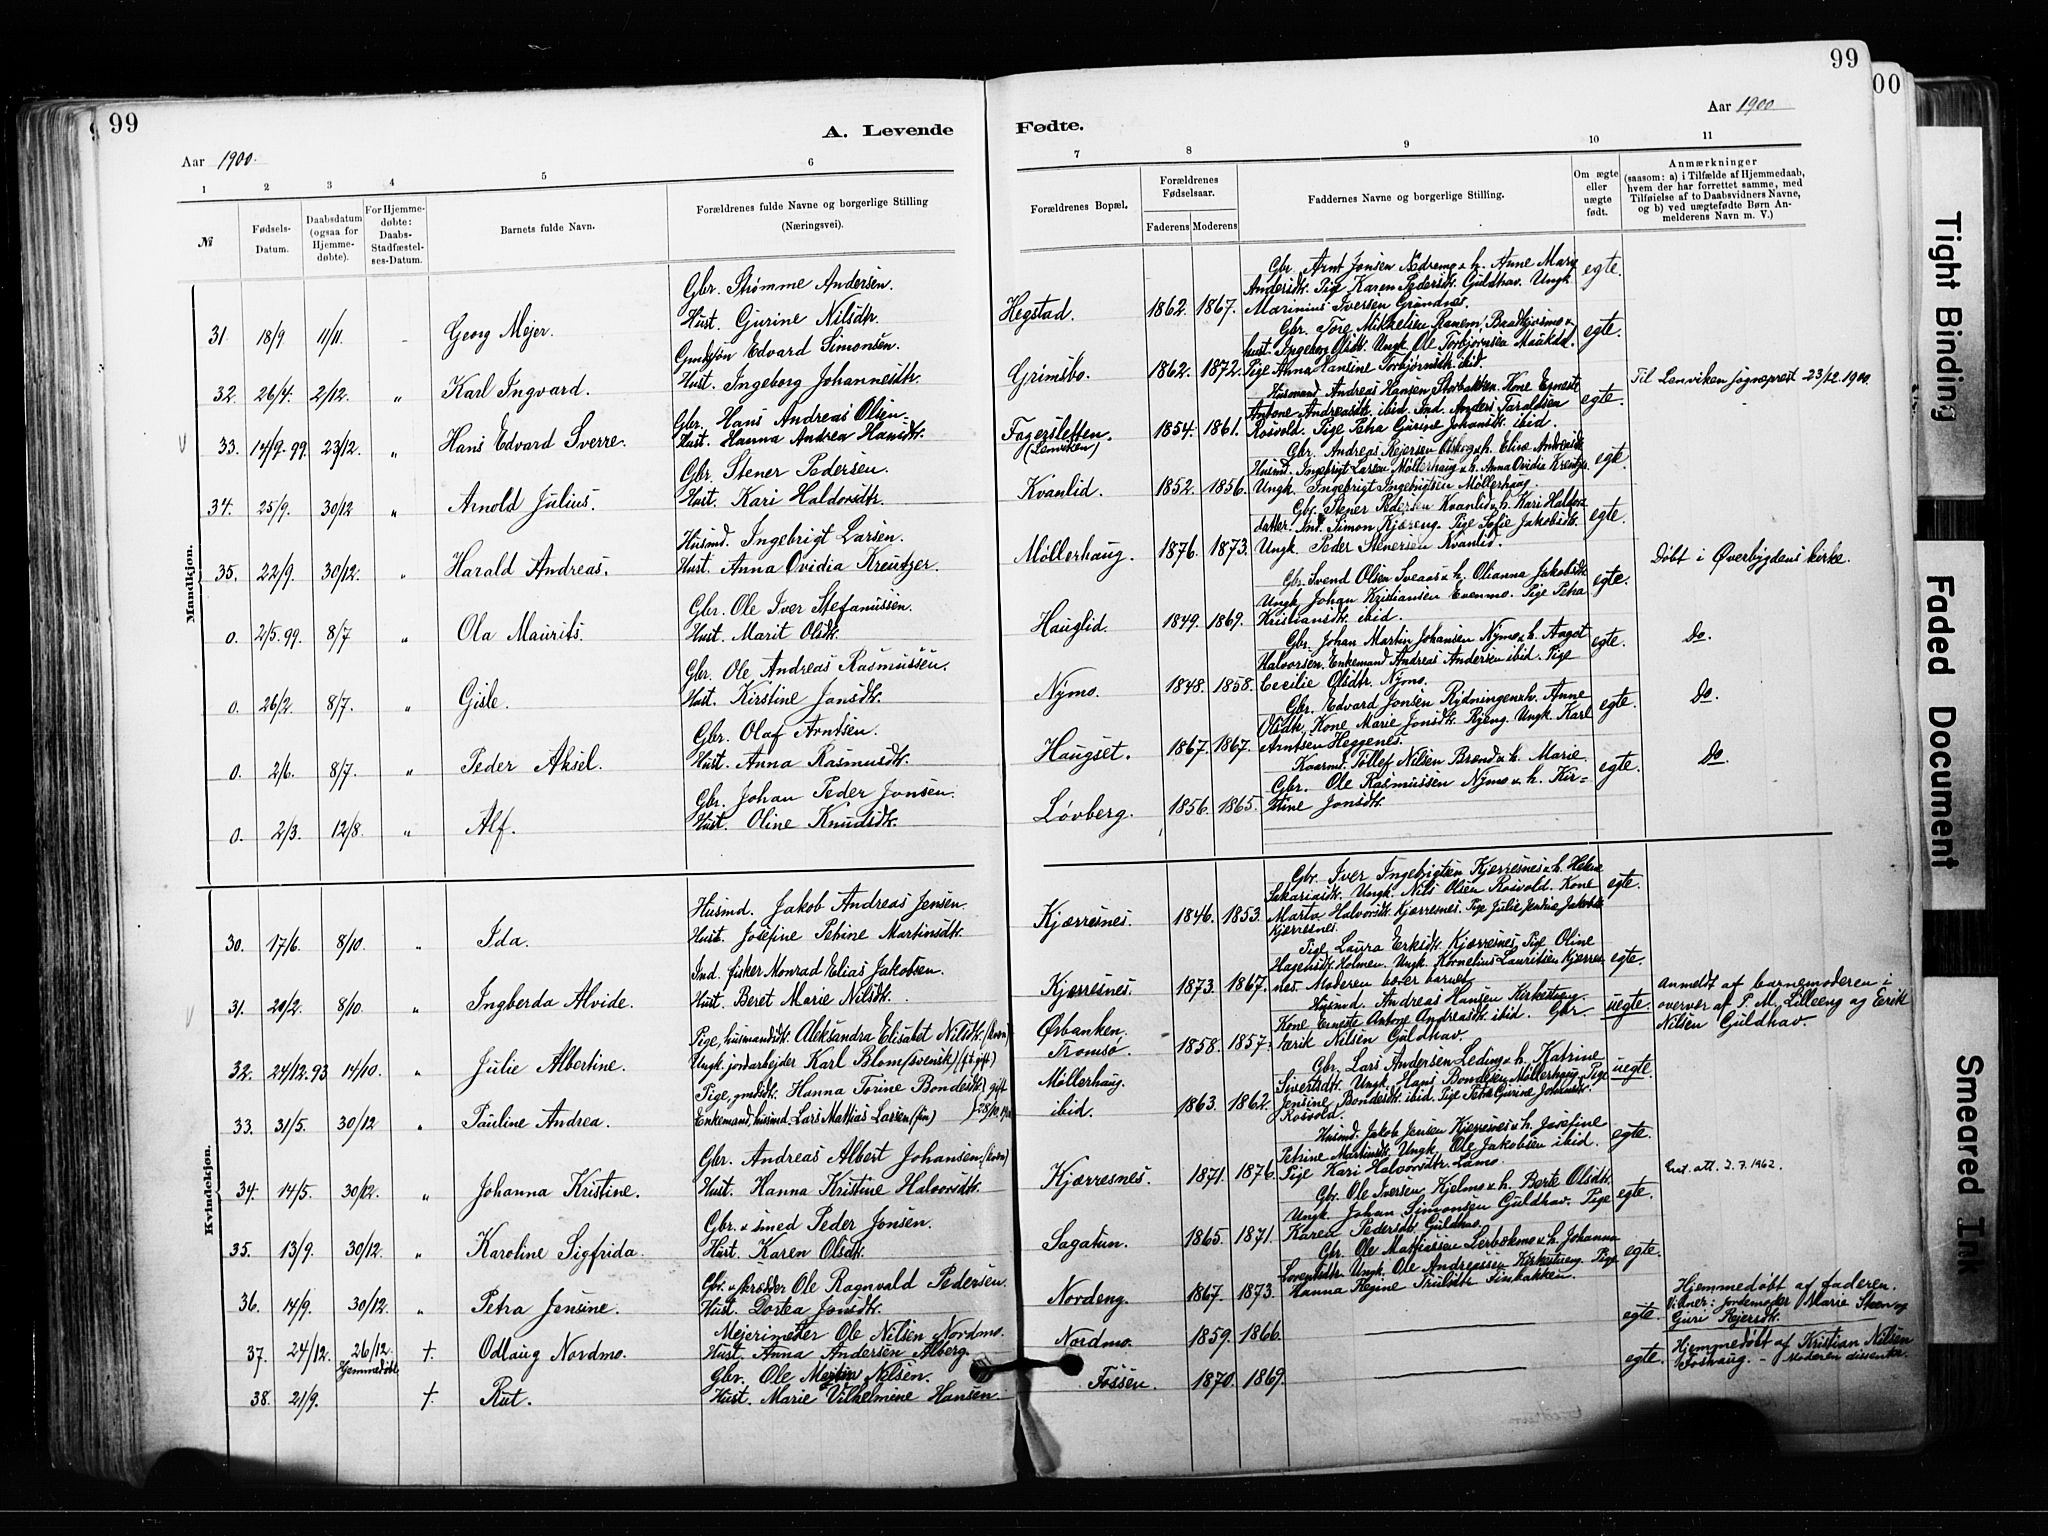 99
99
00
A. Levende
Fødte.
Aar 1900.
Aar 1900
1 2 3 4 5 6
7 8 9 10 11
№
Fødsels-Datum.
Daabsdatum (ogsaa for Hjemme-døbte).
For Hjemme-døbte: Daabs-Stadfæstel-ses-Datum.
Barnets fulde Navn.
Forældrenes fulde Navne og borgerlige Stilling
(Næringsvei).
Forældrenes Bopæl.
Forældrenes Fødselsaar.
Faderens Moderens
Faddernes Navne og borgerlige Stilling.
Om ægte eller uægte født.
Anmærkninger
(saasom: a) i Tilfælde af Hjemmedaab,
hvem der har forrettet samme, med
Tilføielse af to Daabsvidners Navne,
og b) ved uægtefødte Børn An-
melderens Navn m. V.)
Mandkjøn.
Gbr. Strømme Andersen.
31. 18/9 11/11 - Georg Mejer. Hust. Gurine Nilsdtr. Hegstad. 1862. 1867. egte.
Gbr. Arnt Jonsen Nedremo & h. Anne Mary
Andersdtr. Pige Karen Pedersdtr. Guldhav. Ungk.
Marinius Iversen Grundnes.
Gmdsøn Edvard Simonsen.
32. 26/4. 2/12. „ Karl Ingvard. Hust. Ingeborg Johannesdtr. Grimsbo. 1862. 1872. egte. Til Lenviken sogneprest 23/12 1900.
Gbr. Tore Mikkelsen Ramem, Bradhjosmo &
hust. Ingeborg Olsdtr. Ungk. Ole Torbjørnsen
Pige Anna Hansine Torbjørnsdtr. ibid.
Gbr. Hans Andreas Olsen.
33. 14/9.99. 23/12. „ Hans Edvard Sverre. Hust. Hanna Andrea Hansdtr. Fagersletten. (Lenviken) 1854. 1861. egte.
Husmand Andreas Hansen Storbakken. Kone Erneste
Antone Andreasdtr. ibid. Ind. Anders Taraldsen
Rosvold. Pige Petra Gurine Johansdtr. ibid.
Gbr. Stener Pedersen.
34. 25/9. 30/12 „ Arnold Julius. Hust. Kari Haldorsdtr. Kvanlid. 1852. 1856. egte.
Gbr. Andreas Rejersen Olskog & h. Elise Andreasdtr.
Husmd. Ingebrigt Larsen Møllerhaug & h. Anna Ovidia Kreutzer.
Ungk. Ingebrigt Ingebrigtsen Møllerhaug.
Husmd. Ingebrigt Larsen.
35. 22/9. 30/12. „ Harald Andreas. Hust. Anna Ovidia Kreutzer. Møllerhaug. 1876. 1873. egte.
Gbr. Stener Pedersen Kvanlid & h. Kari Haldors
datter. Ind. Simon Kjæreng. Pige Sofie Jakobsdtr.
Ungk. Peder Stenersen Kvanlid.
Gbr. Ole Iver Stefanussen.
0. 2/5.99. 8/7 „ Ola Maurits. Hust. Marit Olsdtr. Hauglid. 1849. 1869. egte. Døbt i Øverbygdens kirke.
Gbr. Svend Olsen Sveaas & h. Olianna Jakobsdtr.
Ungk. Johan Kristiansen Evenmo. Pige Petra
Kristiansdtr. ibid.
Gbr. Ole Andreas Rasmussen.
0. 26/2 8/7. „ Gisle. Hust. Kirstine Jonsdtr. Nymo. 1848. 1858. egte. Do.
Gbr. Johan Martin Johansen Nymo & h. Aagot
Halvorsen. Enkemand Andreas Andersen ibid. Pige
Cecilie Olsdtr. Nymo.
Gbr. Olaf Arntsen.
0. 2/6. 8/7. „ Peder Aksel. Hust. Anna Rasmusdtr. Haugset. 1867. 1867. egte. Do.
Gbr. Edvard Jonsen Rydningen & h. Anne
Olsdtr. Kone Marie Jonsdtr. Rjeng. Ungk. Karl
Arntsen Heggenes.
Gbr. Johan Peder Jonsen.
0. 2/3. 12/8. „ Alf. Hust. Oline Knudsdtr. Løvberg. 1856. 1865. egte. Do
Kvarmd. Tollef Nilsen Brend & h. Marie.
Gbr. Ole Rasmussen Nymo & h. Kir=
stine Jonsdtr.
Kvindekjøn.
Husmd. Jakob Andreas Jensen.
30. 17/6 8/10. „ Ida. Hust. Josefine Petrine Martinsdtr. Kjærresnes. 1846. 1853. egte.
Gbr. Iver Ingebrigtsen Kjærresnes & h. Helene
Sakariasdtr. Ungk. Nils Olsen Rosvold. Kone
Marta Halvorsdtr. Kjærresnes. Pige Julie Jensine Jakobsdtr.
Kjerresnes.
Ind. fisker Monrad Elias Jakobsen.
31. 20/2. 8/10. „ Ingberda Alvide. Hust. Beret Marie Nilsdtr. Kjærresnes. 1873. 1867. egte.
Pige Laura Eriksdtr. Kjærresnes, Pige Oline
Hagensdtr. Holmen. Ungk. Kornelius Lauritsen Kjærres
nes. Moderen bærer barnet.
Pige, husmandsdtr. Aleksandra Elisabet Nilsdtr. (kvæn)
32. 24/12.93 14/10. „ Julie Albertine. Ungk. jordarbejder Karl Blom (svensk) (f.t. gift) Ørbanken. Tromsø. 1858. 1857. uegte.
Husmd. Andreas Hansen Kirkestueng.
Kone Erneste Antone Andreasdtr. ibid. Gbr
Eerik Nilsen Guldhav.
Anmeldt af barnemoderen i
overvær af P. M. Lilleeng og Erik
Nilsen Guldhav.
Pige, gmdsdtr. Hanna Torine Bondesdtr. gift
33. 31/5. 30/12 „ Pauline Andrea. Enkemand, husmd. Lars Mathias Larsen (fin) 28/10.1900 Møllerhaug. ibid. 1863. 1862. uegte.
Gbr. Lars Andersen Leding & h. Katrine
Sivertsdtr. Ungk. Hans Bondesen Møllerhaug. Pige
Jensine Bondesdtr. ibid. Pige Petra Gurine Johansdtr.
Rosvold.
Gbr. Andreas Albert Johansen. (kvæn)
34. 14/5. 30/12. „ Johanna Kristine. Hust. Hanna Kristine Halvorsdtr. Kjærresnes. 1871. 1876. egte. Grat. att. 2.7.1962.
Husmd. Jakob Jensen Kjærresnes & h. Josefine
Petrine Martinsdtr. Ungk. Ole Jakobsen ibid.
Pige Kari Halvorsdtr. Lamo.
Gbr. & smed Peder Jonsen.
35. 13/9. 30/12. „ Karoline Sigfrida. Hust. Karen Olsdtr. Sagatun. 1865. 1871. egte.
Gbr. Ole Iversen Kjelmo & h. Berte Olsdtr.
Ungk. Johan Simonsen Guldhav. Pige
Karen Pedersdtr. Guldhav.
Gbr. & skrædder Ole Ragnvald Pedersen.
36. 14/9. 30/12. „ Petra Jensine. Hust. Dortea Jonsdtr. Nordeng. 1867. 1873. egte.
Gbr. Ole Mathiassen Lerbækmo & h. Johanna
Lorentsdtr. Ungk. Ole Andreassen Kirkestueng. Pige
Hanna Regine Trulsdtr. Finbakken.
Mejerimester Ole Nilsen Nordmo.
37. 24/12. 26/12. Hjemmedøbt † Odlaug Nordmo. Hust. Anna Andersen Alberg. Nordmo. 1859. 1866. egte.
Hjemmedøbt af faderen.
Vidner: Jordemoder Marie Steen og
Guri Rejersdtr.
Gbr. Ole Martin Nilsen.
38. 21/9. † Rut. Hust. Marie Vilhelmine Hansen Fossen. 1870. 1869. egte.
Hjemmedøbt af Kristian Nilsen
Foshaug. – Moderen dissenter.
Tight Binding
Faded Document
Smeared Ink